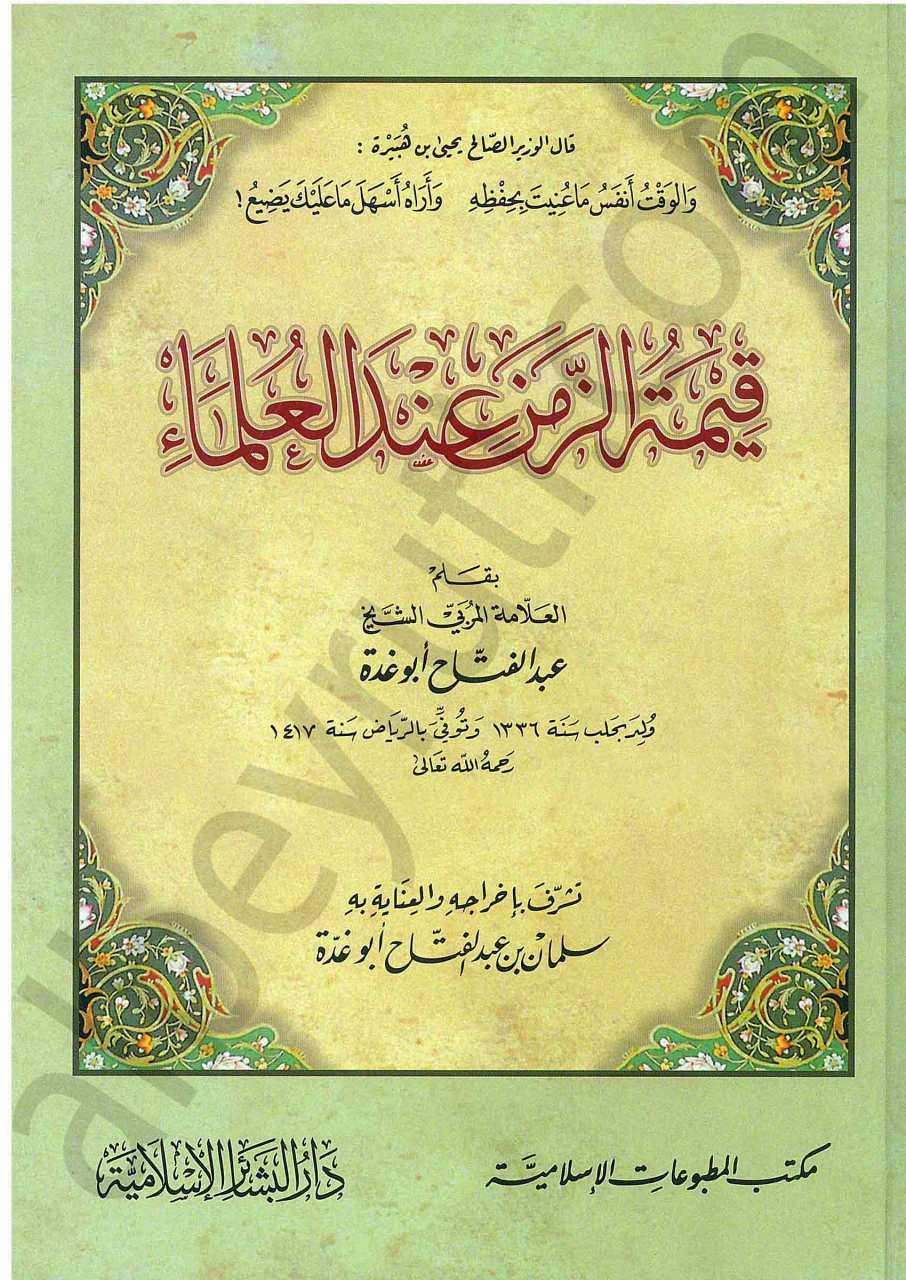 قال الوزير الصّالح يحيى بن هُبَيْرة :
وَالوَقْتُ أَنفَسُ مَا عُنِيتَ بِحِفْظِهِ وَأَرَاهُ أَسْهَلَ مَا عَلَيْكَ يَضِيعُ !
قِيمَةُ الزَّمَنِ عِنْدَ العُلَمَاءِ
بقلم
العَلّامة المُربّي الشَّيخ
عبد الفتّاح أبو غدة
وُلِدَ بحَلب سَنَة ١٣٣٦ وَتُوفِّيَ بالرّياض سَنة ١٤١٧
رَحمهُ اللّه تعَالى
تشرّفَ بإخراجهِ والعِنايةِ بهِ
سلمانُ بن عبد الفتّاح أبو غدّة
مكتب المطبوعات الإسلاميَّة
دَارُ البَشَائِرِ الإِسْلَامِيَّة
albeyrutiron